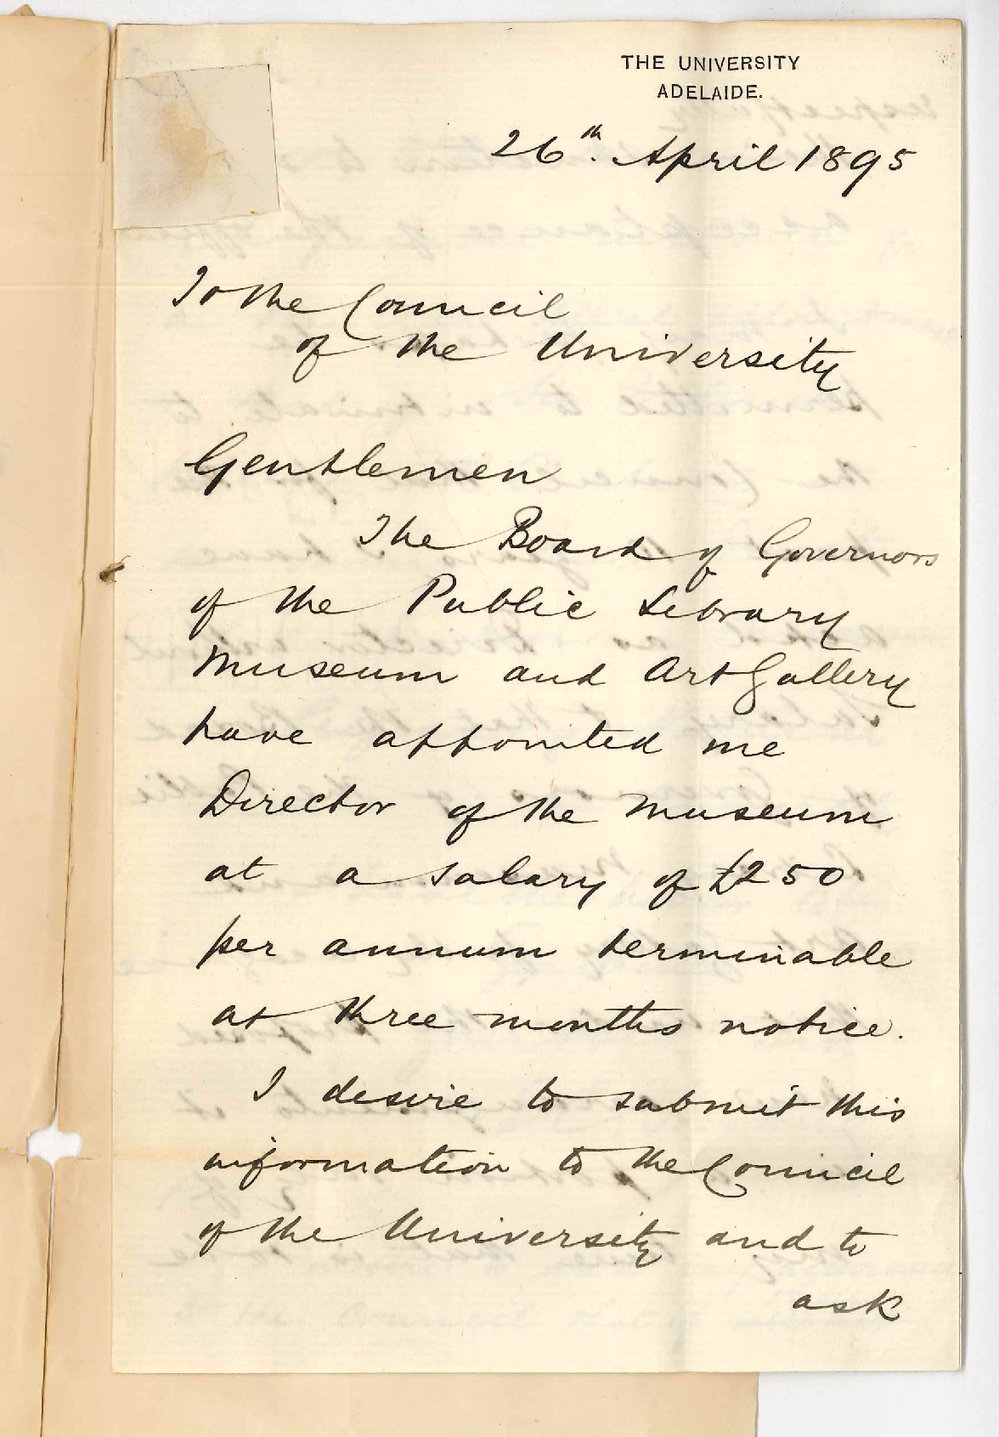 THE UNIVERSITY
ADELAIDE.
26th. April 1895
To the Council
of the University
Gentlemen
The Board of Governors
of the Public Library
Museum and Art Gallery
have appointed me
Director of the Museum
at a salary of £250
per annum terminable
at three months notice.
I desire to submit this
information to the Council
of the University and to
ask